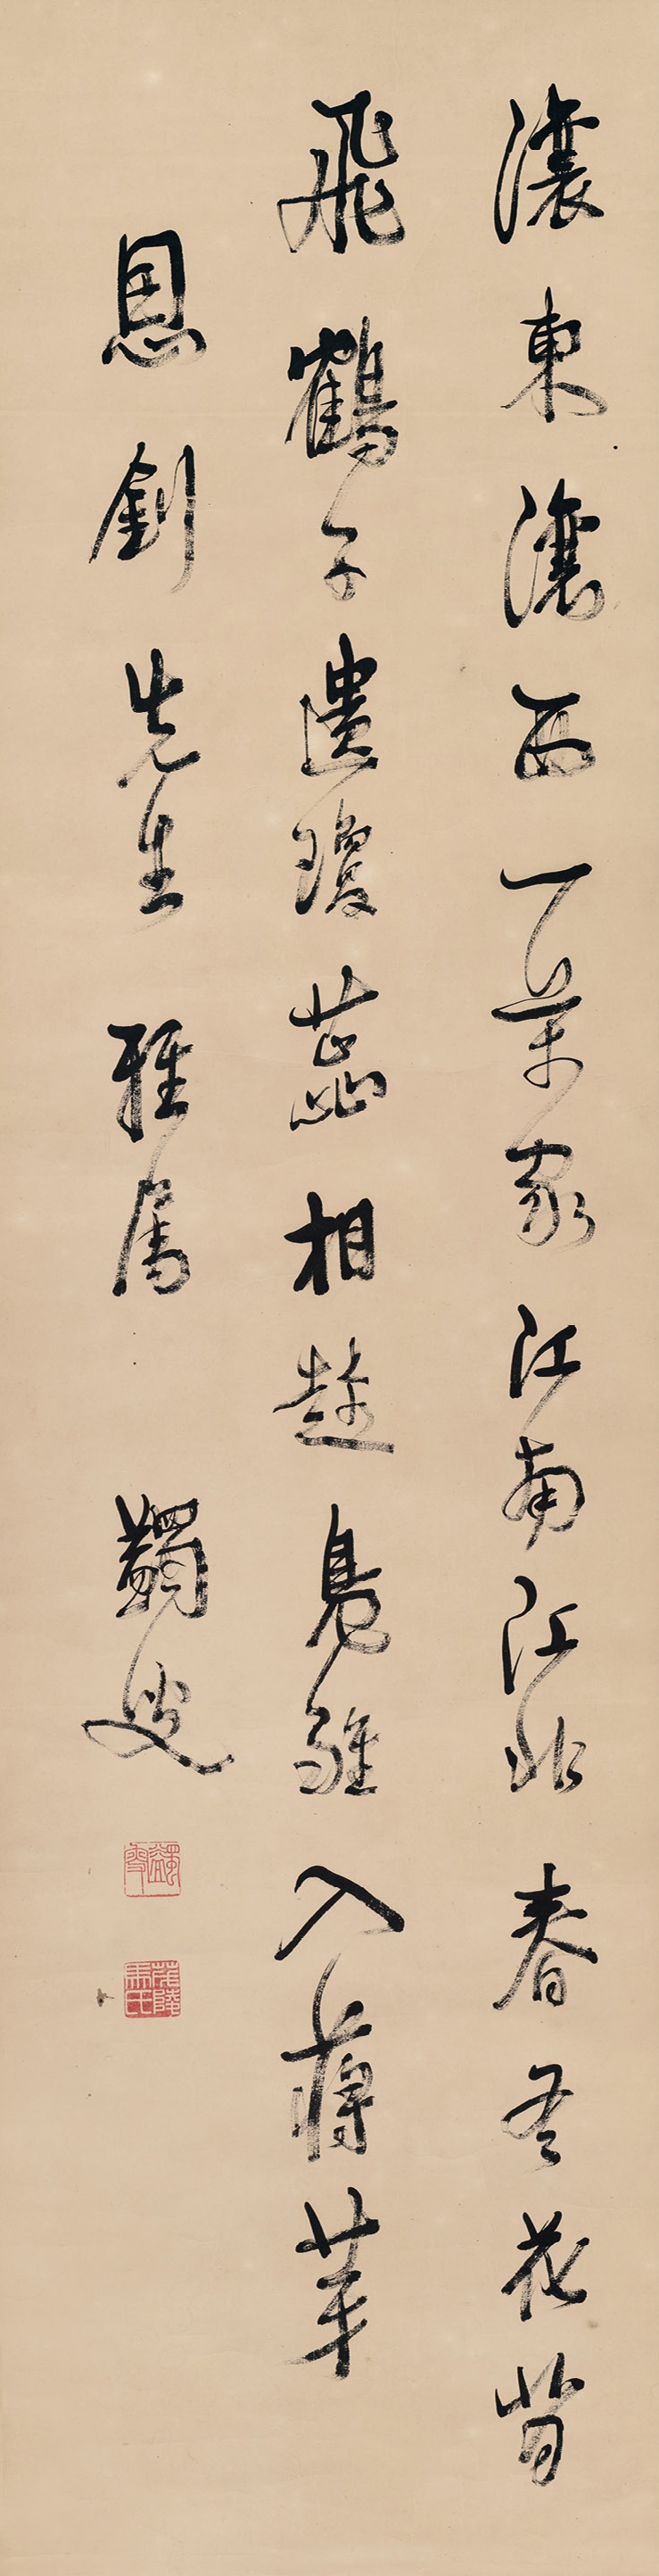 瀼東瀼西一萬家江南江北春冬花背
飛鶴子遺瓊蕊相趁鳧雛入蔣芽
恩釗先生 雅屬 蠲叟
蠲叟